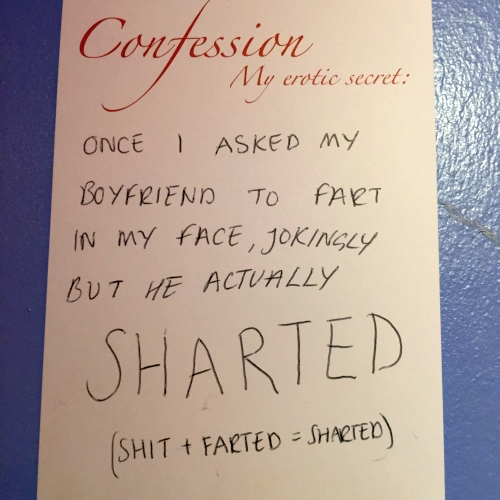 Confession
My erotic secret:
ONCE I ASKED MY
BOYFRIEND TO FART
IN MY FACE, JOKINGLY
BUT HE ACTUALLY
SHARTED
(SHIT + FARTED = SHARTED)